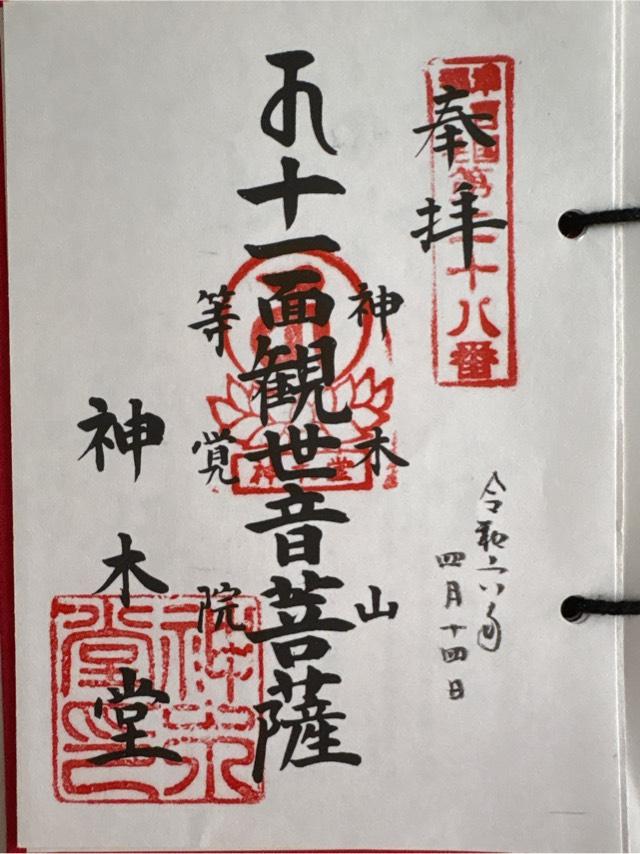 奉拝
第二十八番
令和六年
四月十四日
神木山
十一面観世音菩薩
等覚院
神木堂
神木堂印